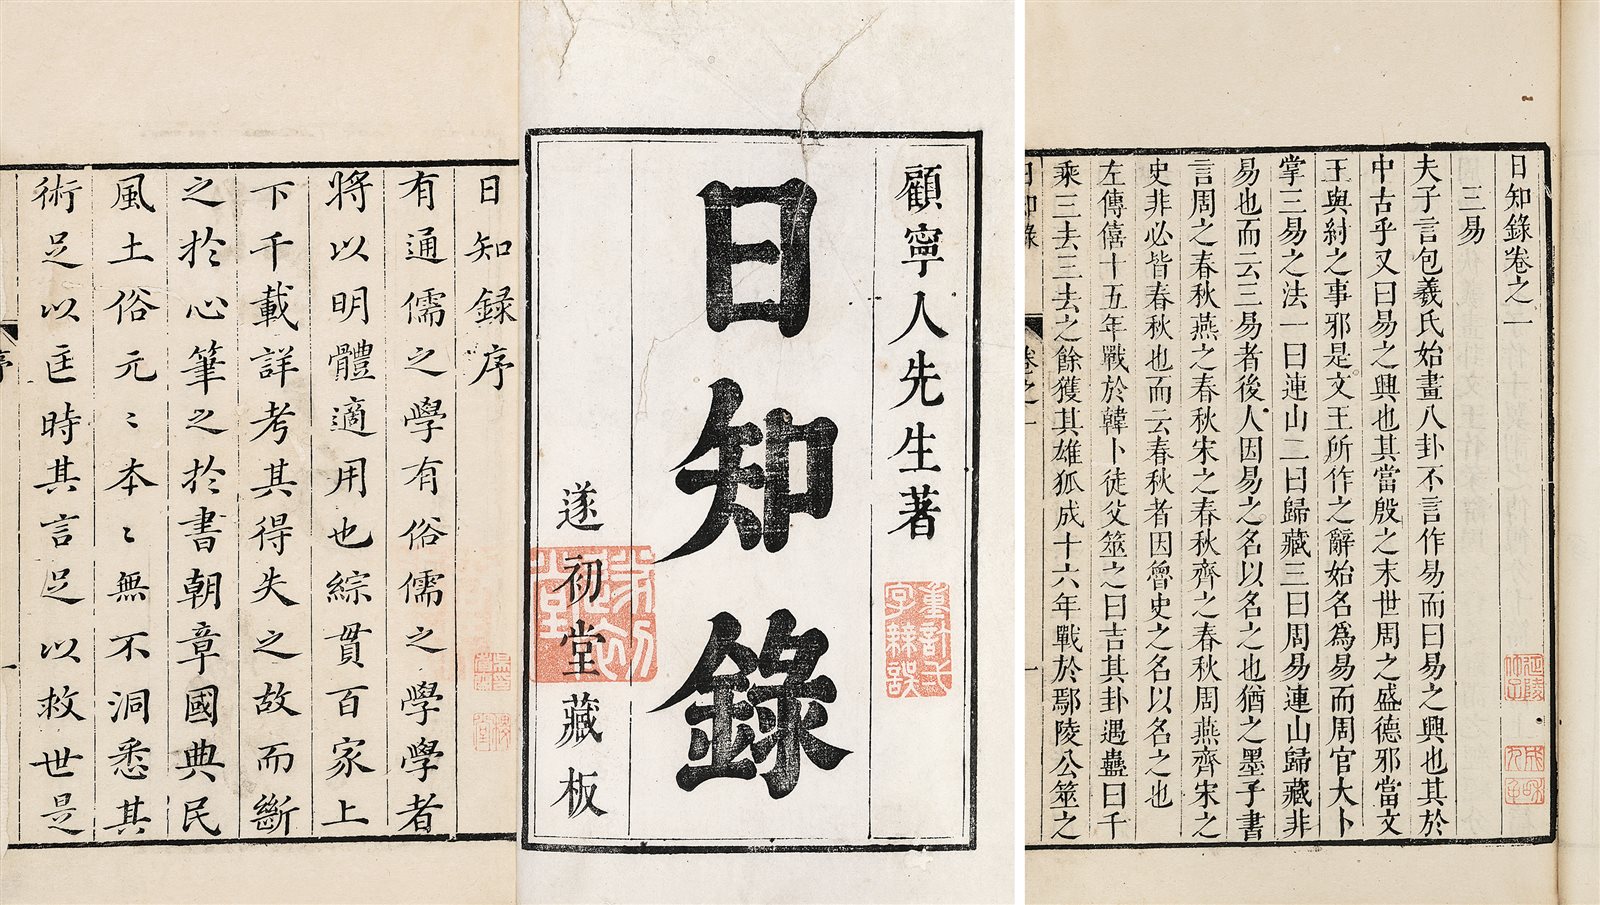 日知錄序
有通儒之學有俗儒之學學者
將以明體適用也綜貫百家上
下千載詳考其得失之故而斷
之於心筆之於書朝章國典民
風土俗元〻本〻無不洞悉其
術足以匡時其言足以救世是
序
一
顧寧人先生著
日知錄
遂初堂藏板
遂初堂
日知錄卷之一
三易
夫子言包羲氏始畫八卦不言作易而曰易之興也其於
中古乎又曰易之興也其當殷之末世周之盛德邪當文
王與紂之事邪是文王所作之辭始名爲易而周官大卜
掌三易之法一曰連山二曰歸藏三曰周易連山歸藏非
易也而云三易者後人因易之名以名之也猶之墨子書
言周之春秋燕之春秋宋之春秋齊之春秋周燕齊宋之
史非必皆春秋也而云春秋者因魯史之名以名之也
左傳僖十五年戰於韓卜徒父筮之曰吉其卦遇蠱曰千
乘三去三去之餘獲其雄狐成十六年戰於鄢陵公筮之
日知錄 卷之一 一